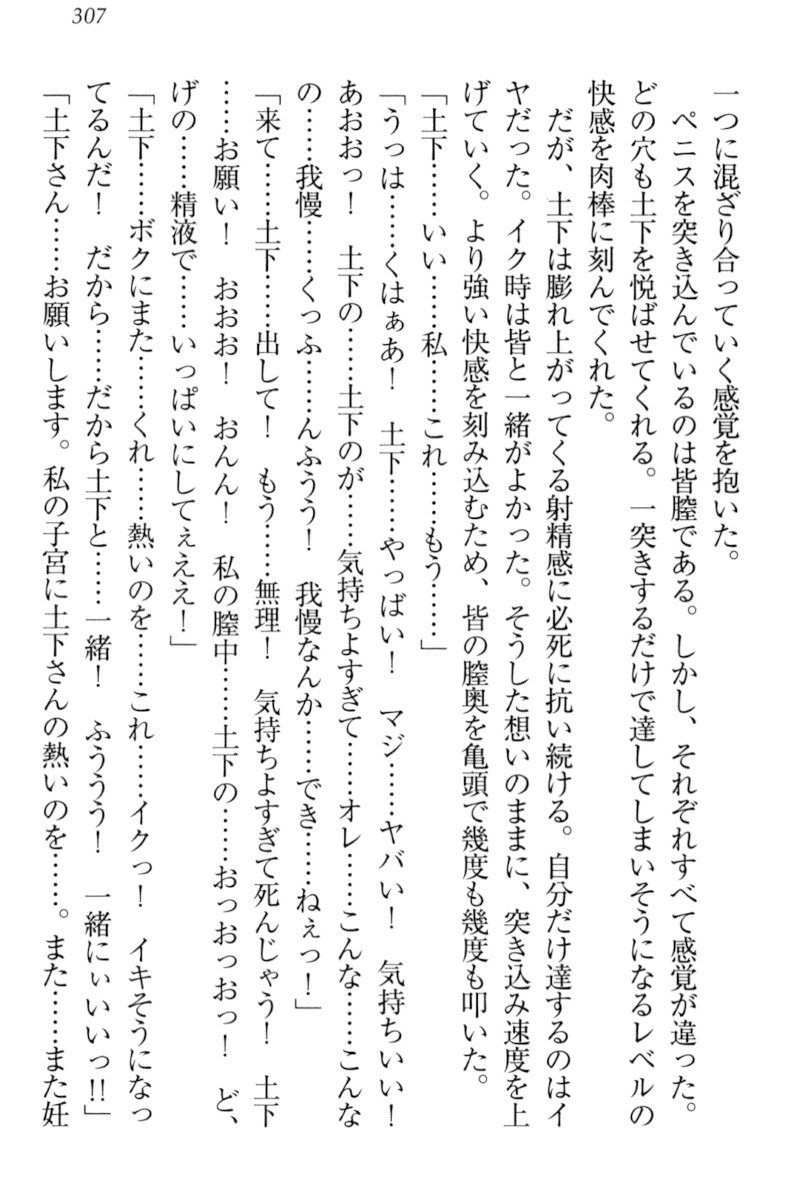 307
一つに混ざり合っていく感覚を抱いた。
　ペニスを突き込んでいるのは皆膣である。しかし、それぞれすべて感覚が違った。
どの穴も土下を悦ばせてくれる。一突きするだけで達してしまいそうになるレベルの
快感を肉棒に刻んでくれた。
　だが、土下は膨れ上がってくる射精感に必死に抗い続ける。自分だけ達するのはイ
ヤだった。イク時は皆と一緒がよかった。そうした想いのままに、突き込み速度を上
げていく。より強い快感を刻み込むため、皆の膣奥を亀頭で幾度も幾度も叩いた。
「土下……いい……私……これ……もう……」
「うっは……くはぁあ！　土下……やっばい！　マジ……ヤバい！　気持ちいい！
あおおっ！　土下の……土下のが……気持ちよすぎて……オレ……こんな……こんな
の……我慢……くっふ……んふうう！　我慢なんか……でき……ねぇっ！」
「来て……土下……出して！　もう……無理！　気持ちよすぎて死んじゃう！　土下
……お願い！　おおお！　おんん！　私の膣中……土下の……おっおっおっ！　ど、
げの……精液で……いっぱいにしてぇええ！」
「土下……ボクにまた……くれ……熱いのを……これ……イクっ！　イキそうになっ
てるんだ！　だから……だから土下と……一緒！　ふううう！　一緒にぃいいっ!!」
「土下さん……お願いします。私の子宮に土下さんの熱いのを……。また……また妊